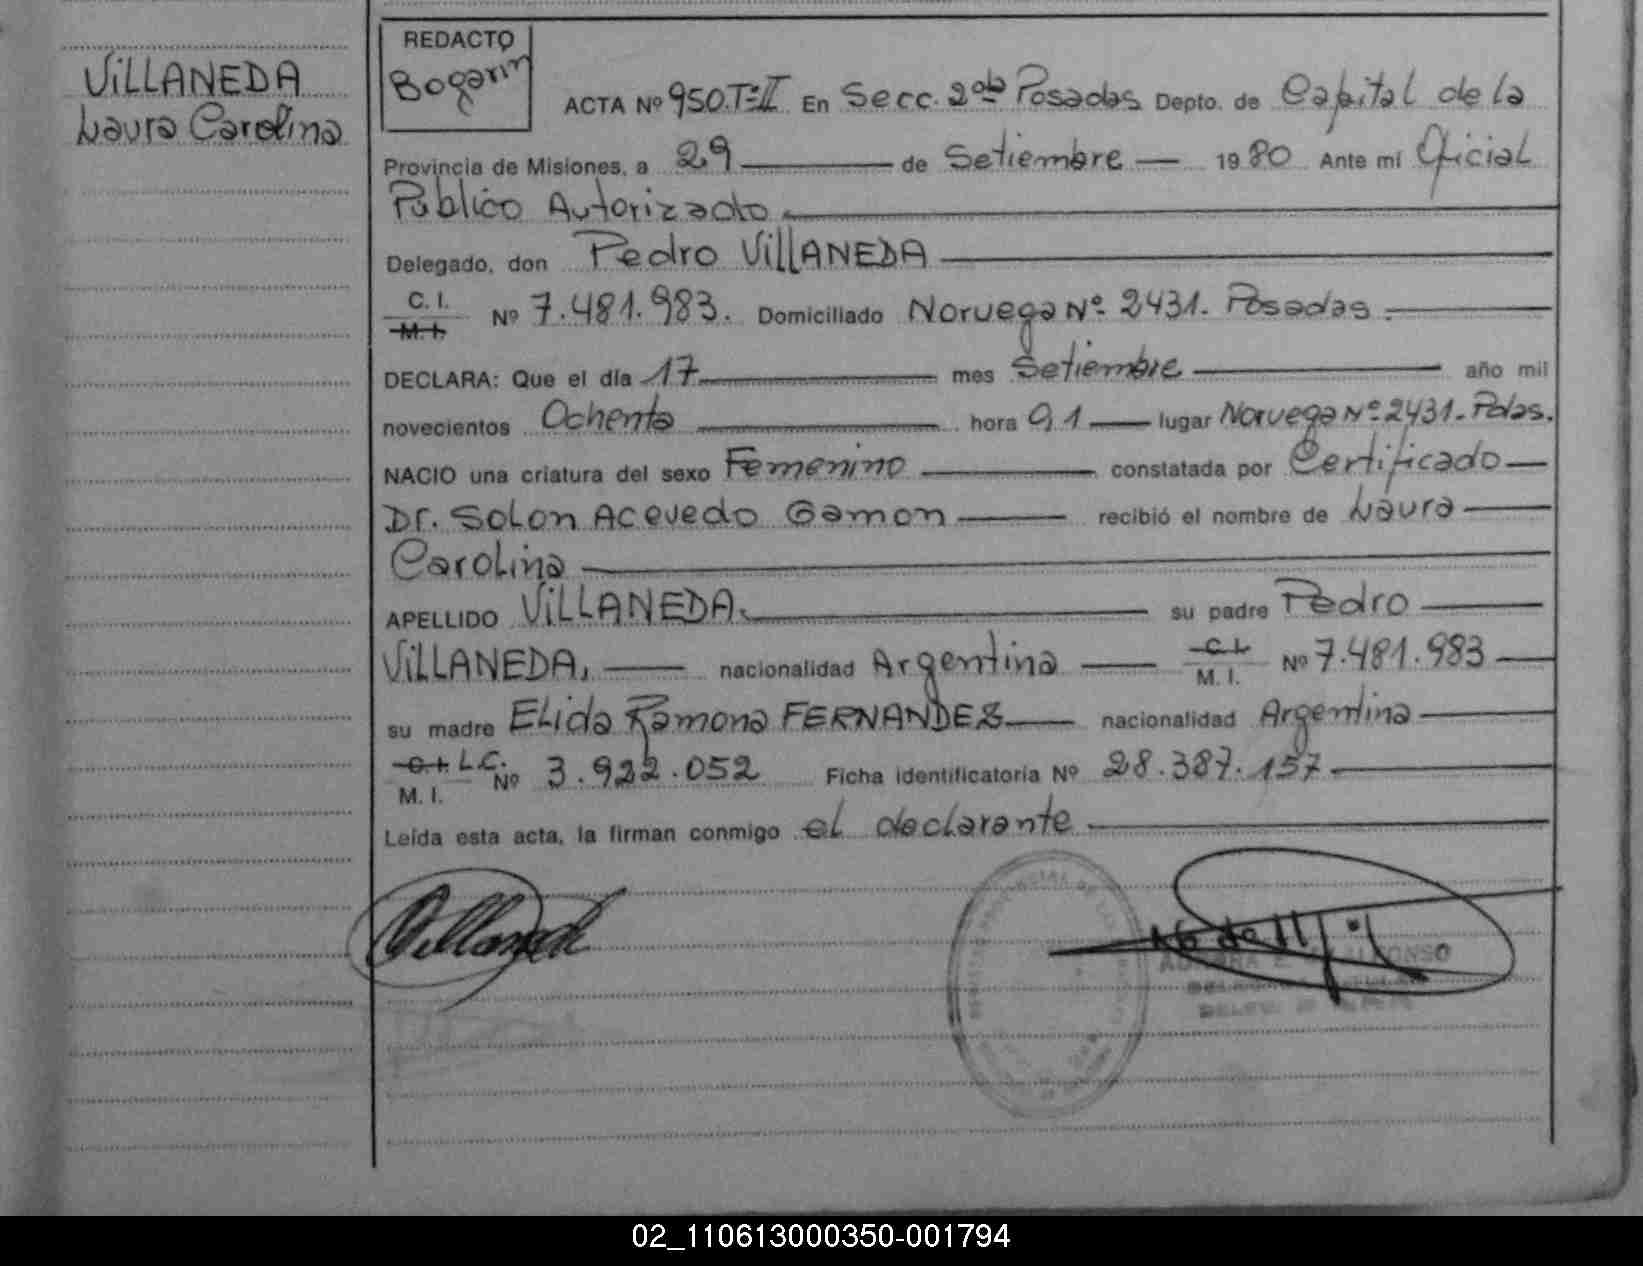 VILLANEDA
Laura Carolina
REDACTO
Bogarin
ACTA Nº 950.Tº II En Secc. 2da Posadas Depto. de Capital de la
Provincia de Misiones, a 29 de Setiembre 1980 Ante mí Oficial
Público Autorizado
Delegado, don Pedro VILLANEDA
C. I.
M. I. Nº 7.481.983. Domiciliado Noruega Nº 2431. Posadas.
DECLARA: Que el día 17 mes Setiembre año mil
novecientos Ochenta hora 01 lugar Noruega Nº 2431- Pdas.
NACIO una criatura del sexo Femenino constatada por Certificado
Dr. Solon Acevedo Gamon recibió el nombre de Laura
Carolina
APELLIDO VILLANEDA. su padre Pedro
VILLANEDA, nacionalidad Argentina C. I. M. I. Nº 7.481.983
su madre Elida Ramona FERNANDEZ nacionalidad Argentina
C. I. L.C. M. I. Nº 3.922.052 Ficha identificatoria Nº 28.387.157
Leída esta acta, la firman conmigo el declarante
02_110613000350-001794